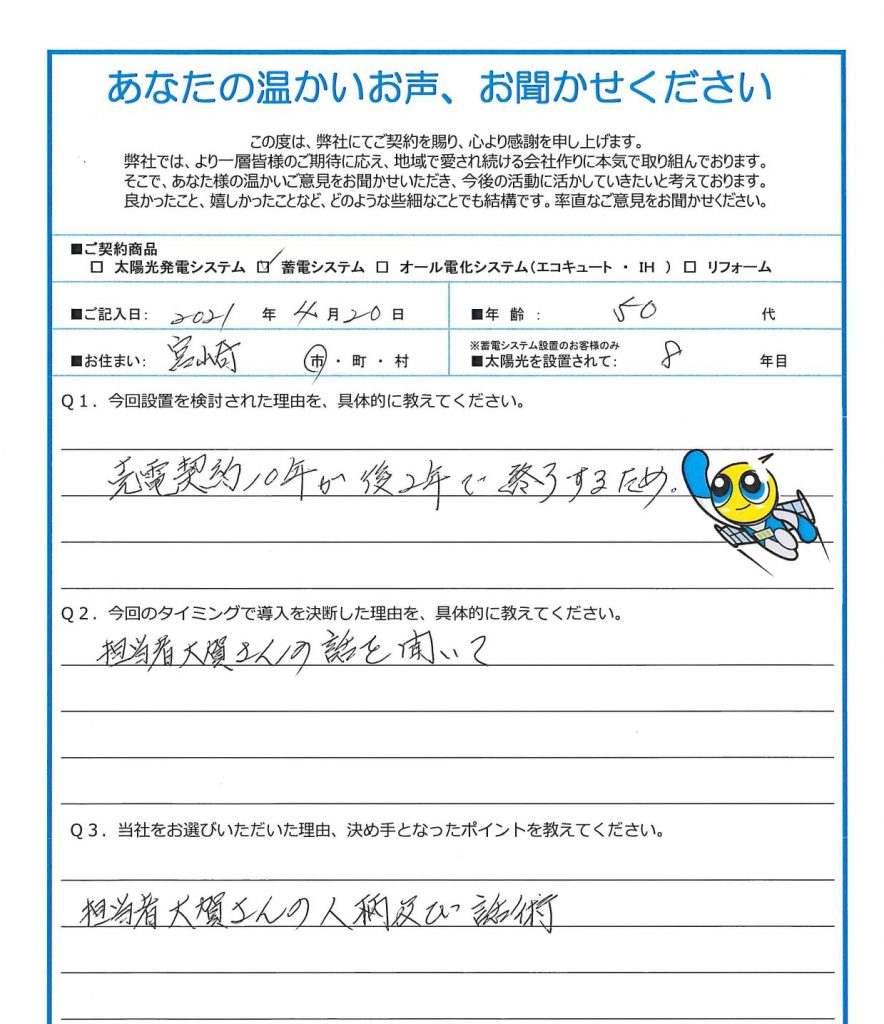 あなたの温かいお声、お聞かせください
この度は、弊社にてご契約を賜り、心より感謝を申し上げます。
弊社では、より一層皆様のご期待に応え、地域で愛され続ける会社作りに本気で取り組んでおります。
そこで、あなた様の温かいご意見をお聞かせいただき、今後の活動に活かしていきたいと考えております。
良かったこと、嬉しかったことなど、どのような些細なことでも結構です。率直なご意見をお聞かせください。
■ご契約商品
□ 太陽光発電システム ☑ 蓄電システム □ オール電化システム(エコキュート ・ IH ) □ リフォーム
■ご記入日: 2021 年 4月20日 ■年 齢 : 50 代
■お住まい: 宮崎 市・町・村 ※蓄電システム設置のお客様のみ
■太陽光を設置されて: 8 年目
Q1. 今回設置を検討された理由を、具体的に教えてください。
売電契約10年が後2年で終了するため。
Q2. 今回のタイミングで導入を決断した理由を、具体的に教えてください。
担当者大賀さんの話を聞いて
Q3. 当社をお選びいただいた理由、決め手となったポイントを教えてください。
担当者大賀さんの人柄及び話術